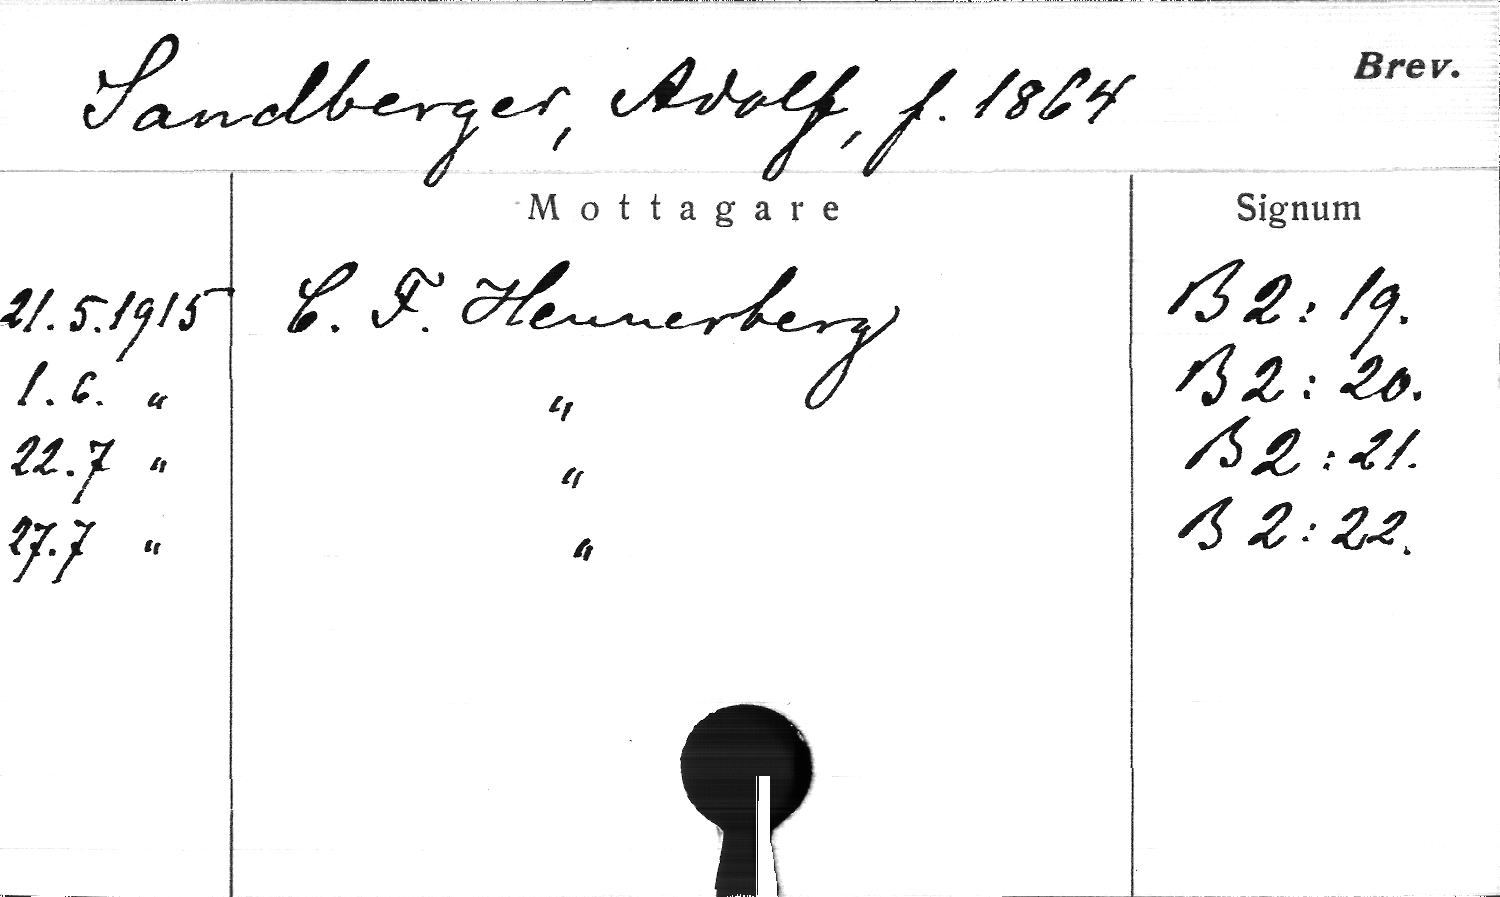 Sandberger, Adolf, f. 1864
Brev.
Mottagare
Signum
21.5.1915 C. F. Hennerberg B 2 : 19.
1.6. " " B 2 : 20.
22.7 " " B 2 : 21.
27.7 " " B 2 : 22.